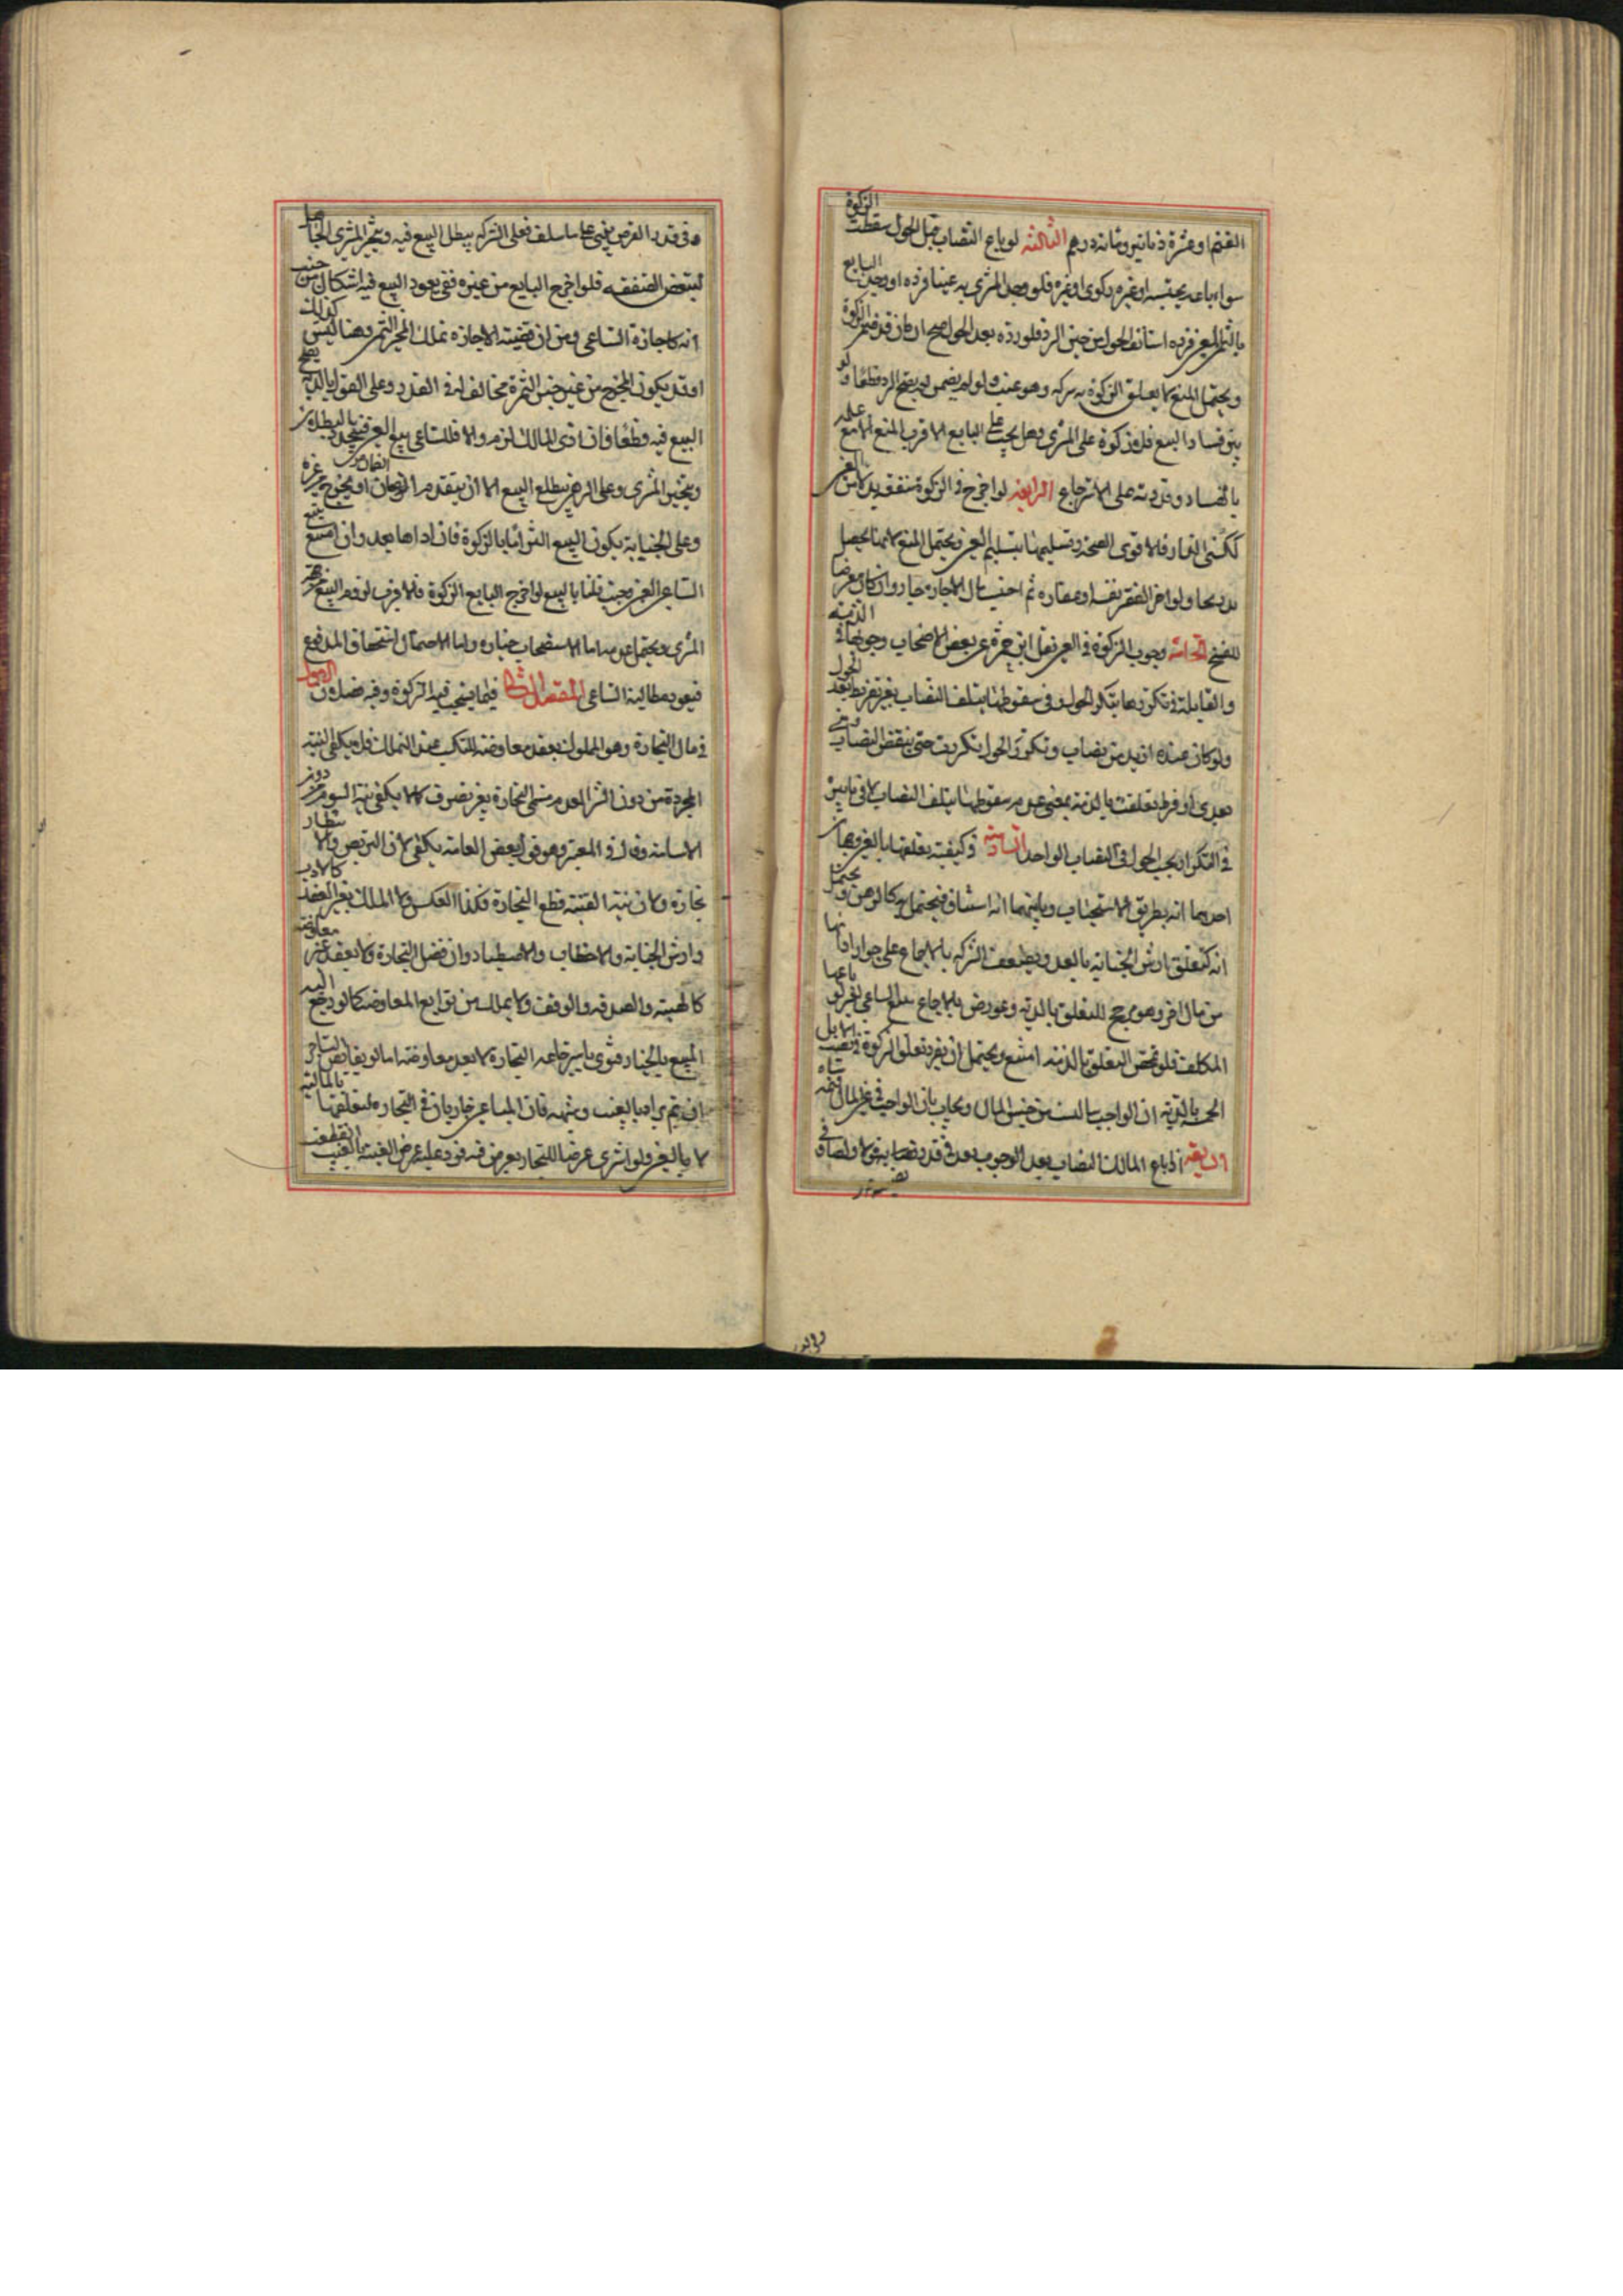 الغنم او عشرة دنانير ومائة درهم الثالثة لو باع النصاب قبل الحول سقطت الزكوة
سواء باعه بجنسه او غيره زكوى او غيره فلو وجد المشترى به عيبا فرده او وجد البايع
بالثمن المعين فرده استأنف الحول من حين الرد فلو رده بعد الحول صح ان كان قد ضمن الزكوة
ويحتمل المنع لا يعلق الزكوة وهو عيب ولو لم يضمن لم يصح الرد قطعا ولو
تبين فساد البيع فلا زكوة على المشترى وهل يجب على البايع الاقرب المنع الا مع علمه
بالفساد وقدرته على الاسترجاع الرابعة لو اخرج في الزكوة منفعة بدلا من العين
كسكنى الدار فالاقوى الصحة وتسليمها بتسليم العين ويحتمل المنع لانها تحصل
تدريجا ولو اجر الفقير نفسه او عقاره ثم احتسب مال الاجارة جاز وان كان معرضا
للفسخ الخامسة وجوب الزكوة في العين نقل ابن حمزة عن بعض الاصحاب وجوبها في الذمة
والفايدة في تكررها بتكرر الحول وفي سقوطها بتلف النصاب بغير تفريط بعد الحول
ولو كان عنده ازيد من نصاب وتكرر الحول تكررت حتى ينقص النصاب
تعدى او فرط تعلقت بالذمة بمعنى عدم سقوطها بتلف النصاب لا في تأثير
في التكرار بتجدد الحول في النصاب الواحد السادسة في كيفية تعلقها بالعين وجهان
احدهما انه بطريق الاستحقاق وثانيهما انه استيثاق فيحتمل انه كالرهن ويحتمل
انه كتعلق ارش الجناية بالعبد ويضعف الشركة بالاجماع على جواز ادائها
من مال اخر وهو مرجح للتعلق بالذمة وعورض بالاجماع على تتبع الساعي العين لو باعها
المكلف فلو تمحض التعلق بالذمة امتنع ويحتمل ان يفرد تعلق الزكوة في نصب الابل
الخمسة بالذمة ان الواجب ليس من جنس المال ويجاب بان الواجب في عين المال قيمة شاه
السابعة اذا باع المالك النصاب بعد الوجوب نفذ في قدر نصيبه قولا واحدا
وفي قدر الفرض يبنى على ما سلف فعلى الشركة يبطل البيع فيه ويتخير المشترى الجاهل
لتبعض الصفقة فلو اخرج البايع من غيره ففي نفوذ البيع فيه اشكال من حيث
انه كاجازة الساعي ومن ان قضية الاجازة تملك المجيز الثمن وهنا ليس كذلك
اذ قد يكون المخرج من غير جنس الثمن ومخالفا له في القدر وعلى القول بالذمة يصح
البيع فيه قطعا فان ادى المالك لزم والا فللساعي تتبع العين فيتجدد البطلان
ويتخير المشترى وعلى الرهن يبطل البيع الا ان يتقدم الضمان او يخرج من غيره
وعلى الجناية يكون البيع التزاما بالزكوة فان اداها نفد وان امتنع تتبع
الساعي العين وحيث قلنا بالبيع لو اخرج البايع الزكوة فالاقرب لزوم البيع من جهة
المشترى ويحتمل عدمه اما لاستصحاب خياره واما لاحتمال استحقاق المدفوع
فيعود مطالبة الساعي المقصد الثاني فيما يستحب فيه الزكوة وفيه فصلان الاول
في مال التجارة وهو المملوك بعقد معاوضة للتكسب عند التملك فلا يكفي النية
المجردة من دون الشراء لعدم مسمى التجارة بغير تصرف كما لا يكفي نية السوم من دون
الاسامة وقال في المعتبر وهو قول بعض العامة يكفي لان التربص والانتظار
تجارة ولان نية القنية تقطع التجارة فكذا العكس ولا الملك بغير العقد كالارث
وارش الجناية والاحتطاب والاصطياد وان قصد التجارة ولا بعقد غير معاوضة
كالهبة والصدقة والوقف ولا بما ليس من توابع المعاوضة كما لو رجع اليه
المبيع بالخيار فنوى باسترجاعه التجارة لا يعد معاوضة اما لو تقايض التاجران
ثم ترادا بالعيب وشبهه فان المتاعين جاريان في التجارة لتعلقها بالمالية
لا بالعين ولو اشترى عرضا للتجارة بعرض قنية فرد عليه عرض القنية بالعيب انقطعت